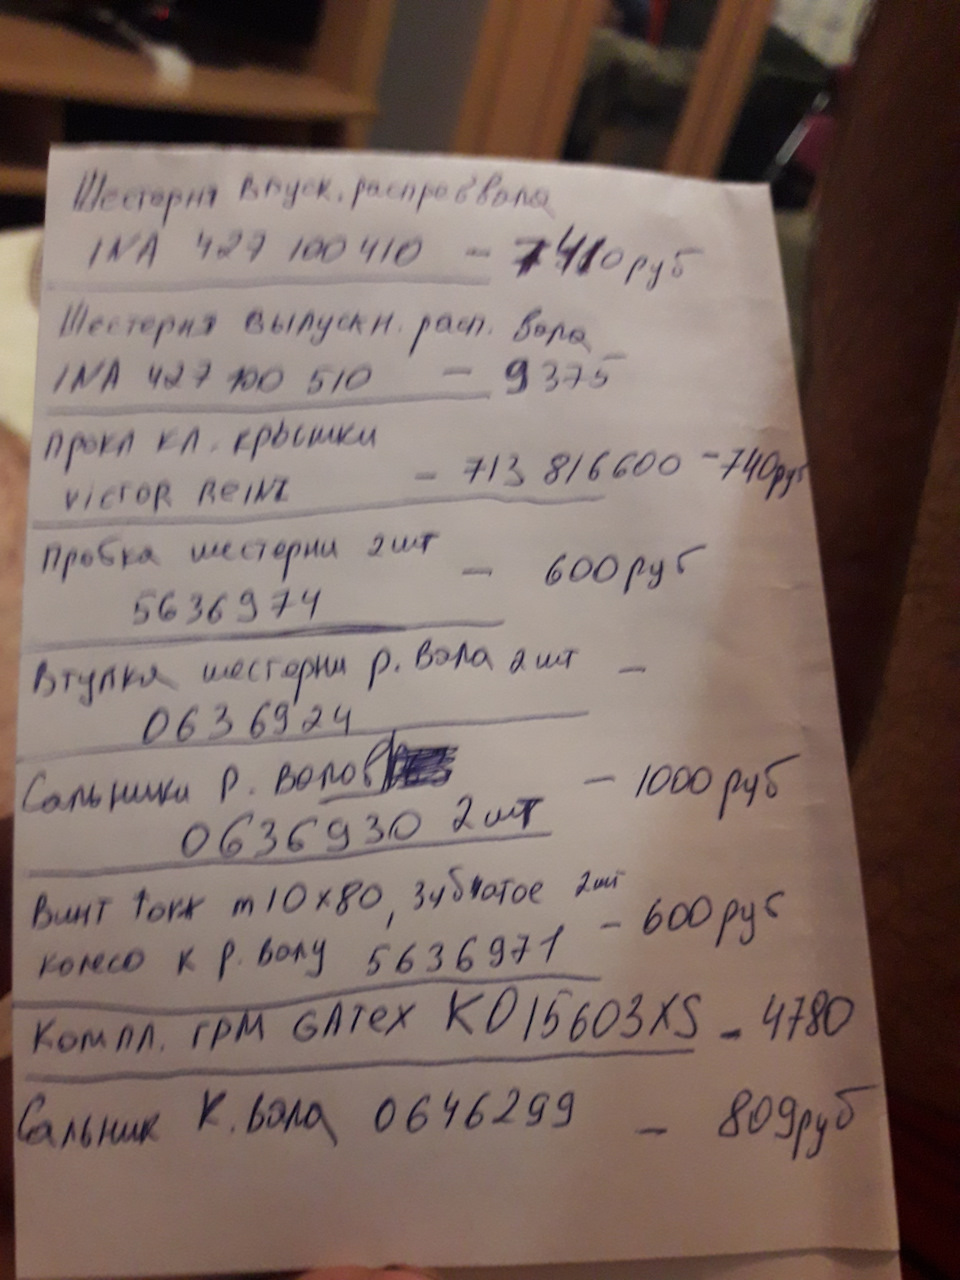 Шестерня впуск. распред вала
INA 427 100 410 - 7410 руб
Шестерня выпускн. расп. вала
INA 427 100 510 - 9375
Прокл кл. крышки
VICTOR REINZ - 713 816600 - 740 руб
Пробка шестерни 2 шт
5636974 - 600 руб
Втулка шестерни р. вала 2 шт -
0636924
Сальники р. валов - 1000 руб
0636930 2 шт
Винт торк m10x80, зубчатое 2шт
колесо к р. валу 5636971 - 600 руб
Компл. ГРМ GATEX KD15603XS - 4780
Сальник К. вала 0646299 - 809 руб